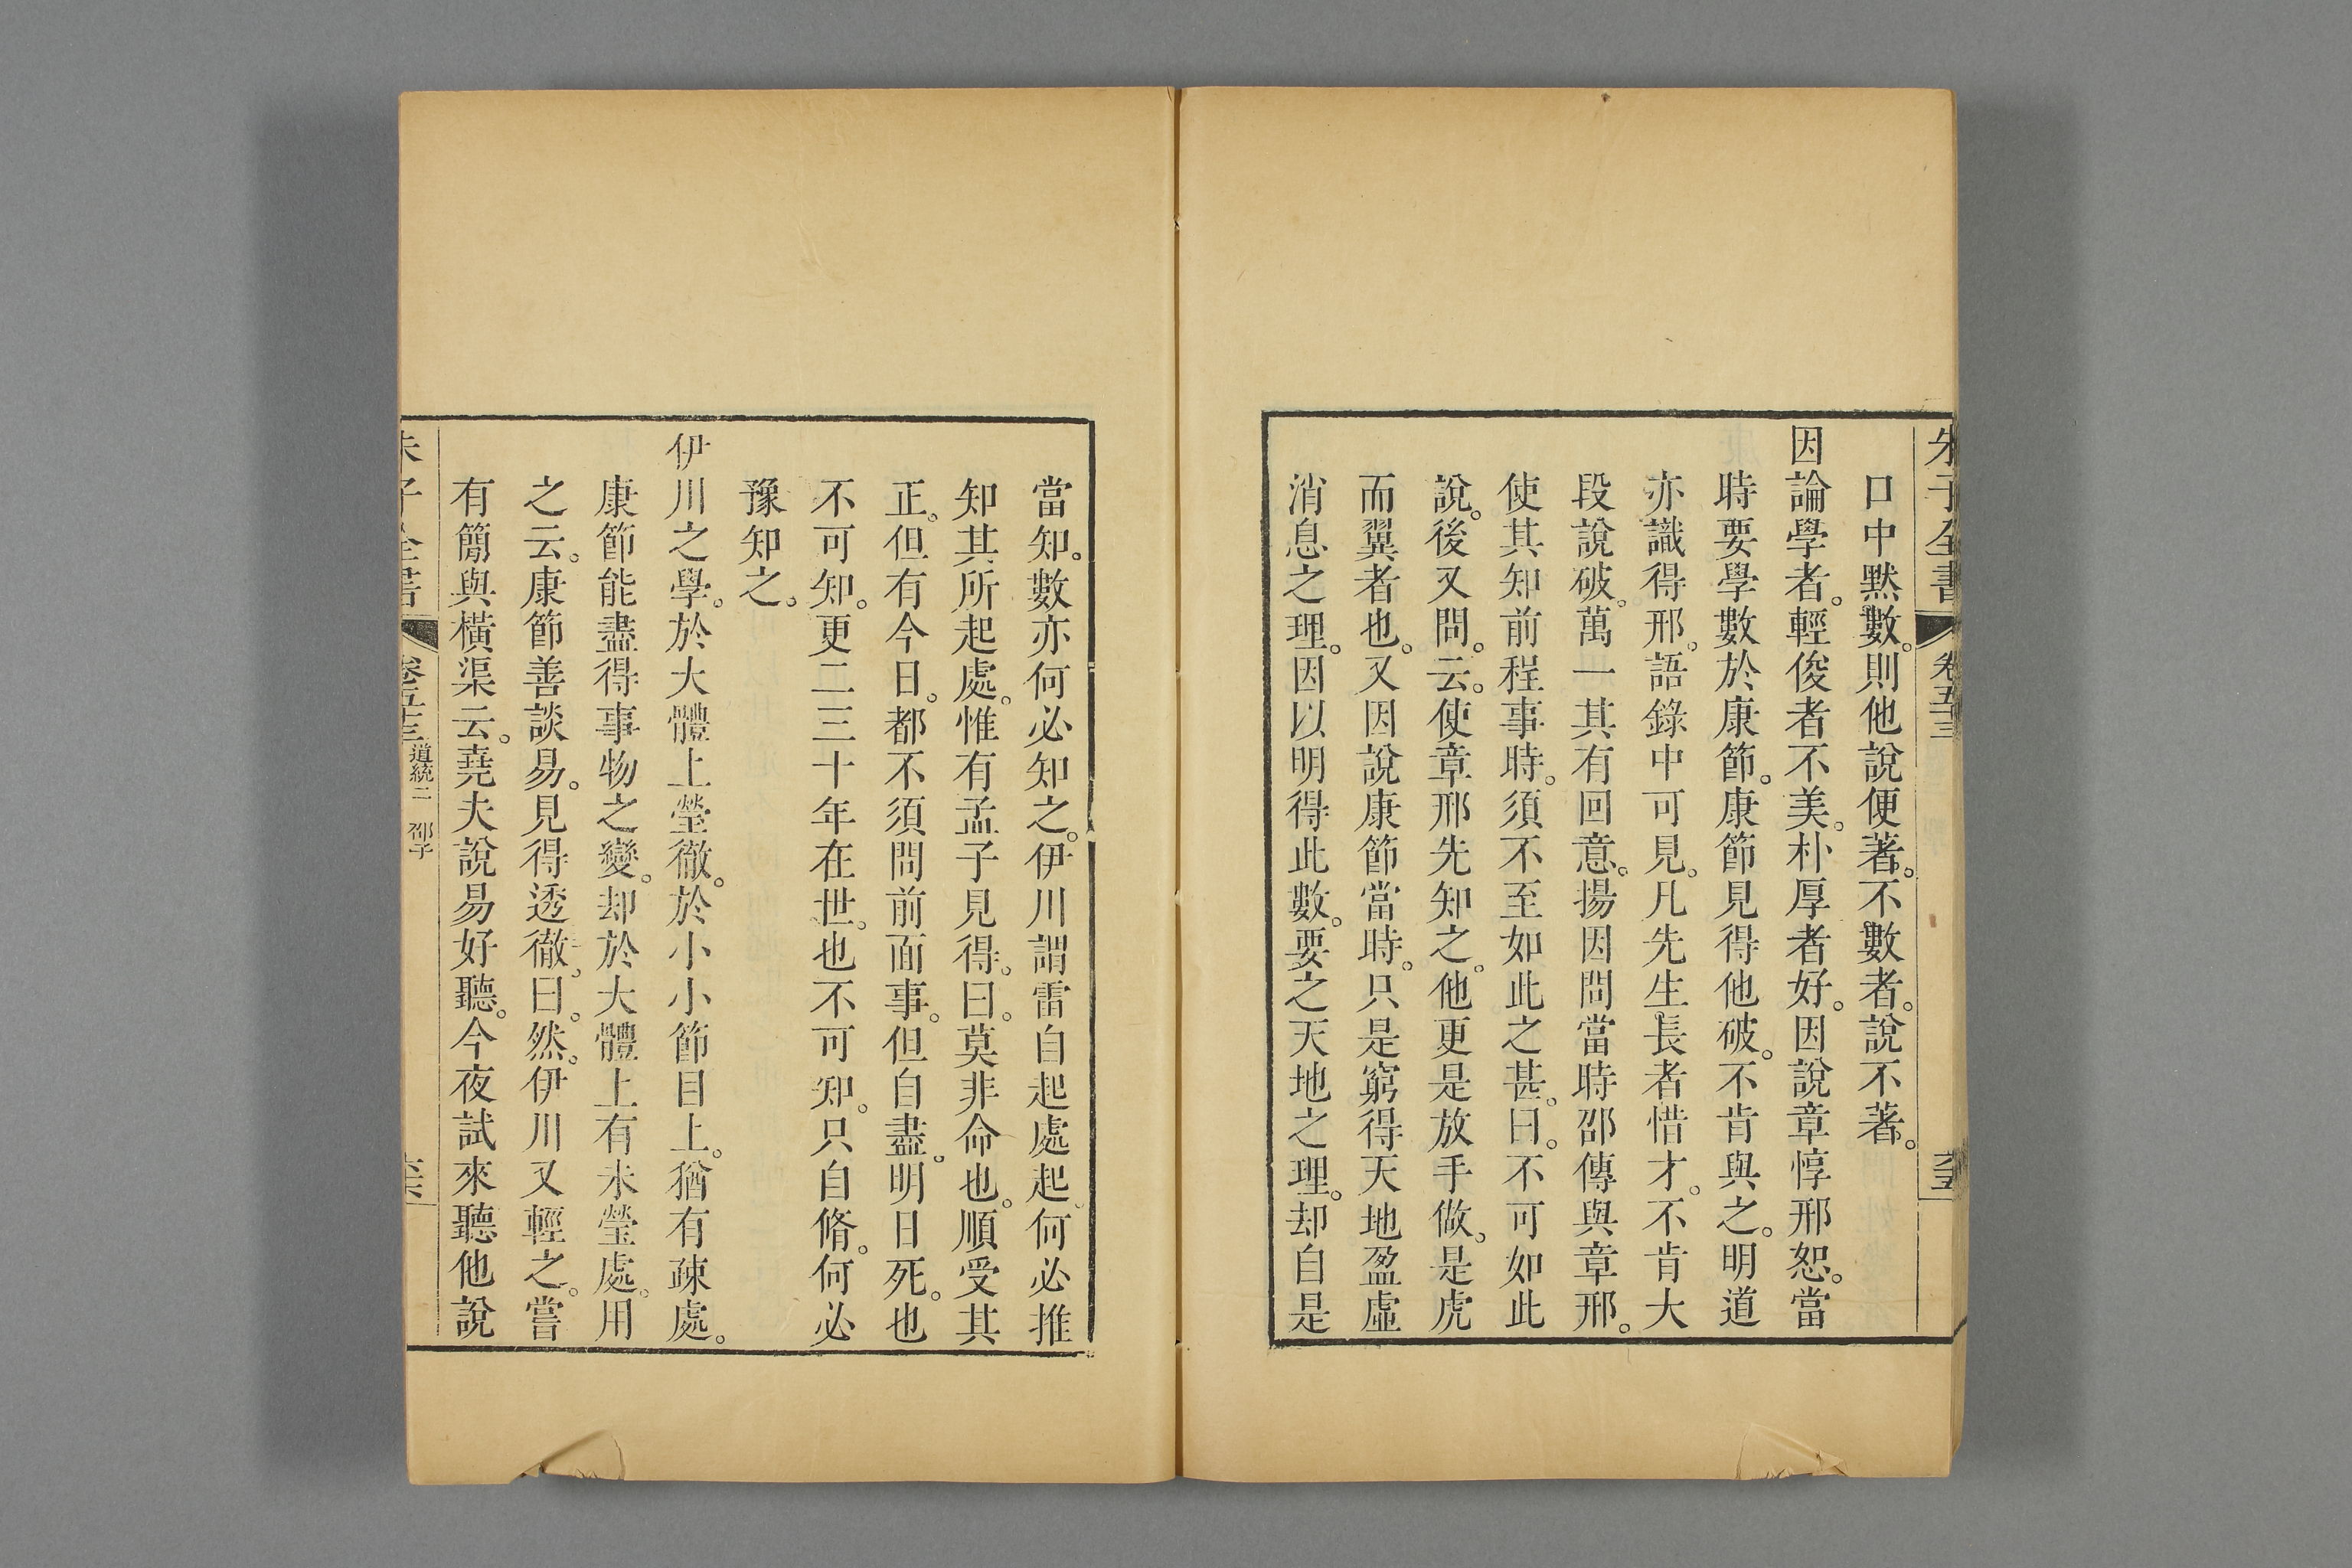 朱子全書 卷五十三 六十五
口中默數。則他說便著。不數者。說不著。
因論學者。輕俊者不美。朴厚者好。因說章惇邢恕。當
時要學數於康節。康節見得他破。不肯與之。明道
亦識得邢。語錄中可見。凡先生長者惜才。不肯大
段說破。萬一其有回意。揚因問當時邵傳與章邢。
使其知前程事時。須不至如此之甚。曰。不可如此
說。後又問。云。使章邢先知之。他更是放手做。是虎
而翼者也。又因說康節當時。只是窮得天地盈虛
消息之理。因以明得此數。要之天地之理。却自是
當知。數亦何必知之。伊川謂雷自起處起。何必推
知其所起處。惟有孟子見得。曰。莫非命也。順受其
正。但有今日。都不須問前面事。但自盡。明日死。也
不可知。更二三十年在世。也不可知。只自脩。何必
豫知之。
伊川之學。於大體上瑩徹。於小小節目上。猶有疎處。
康節能盡得事物之變。却於大體上有未瑩處。用
之云。康節善談易。見得透徹。曰。然。伊川又輕之。嘗
有簡與橫渠云。堯夫說易好聽。今夜試來聽他說
朱子全書 卷五十三 道統二 邵子